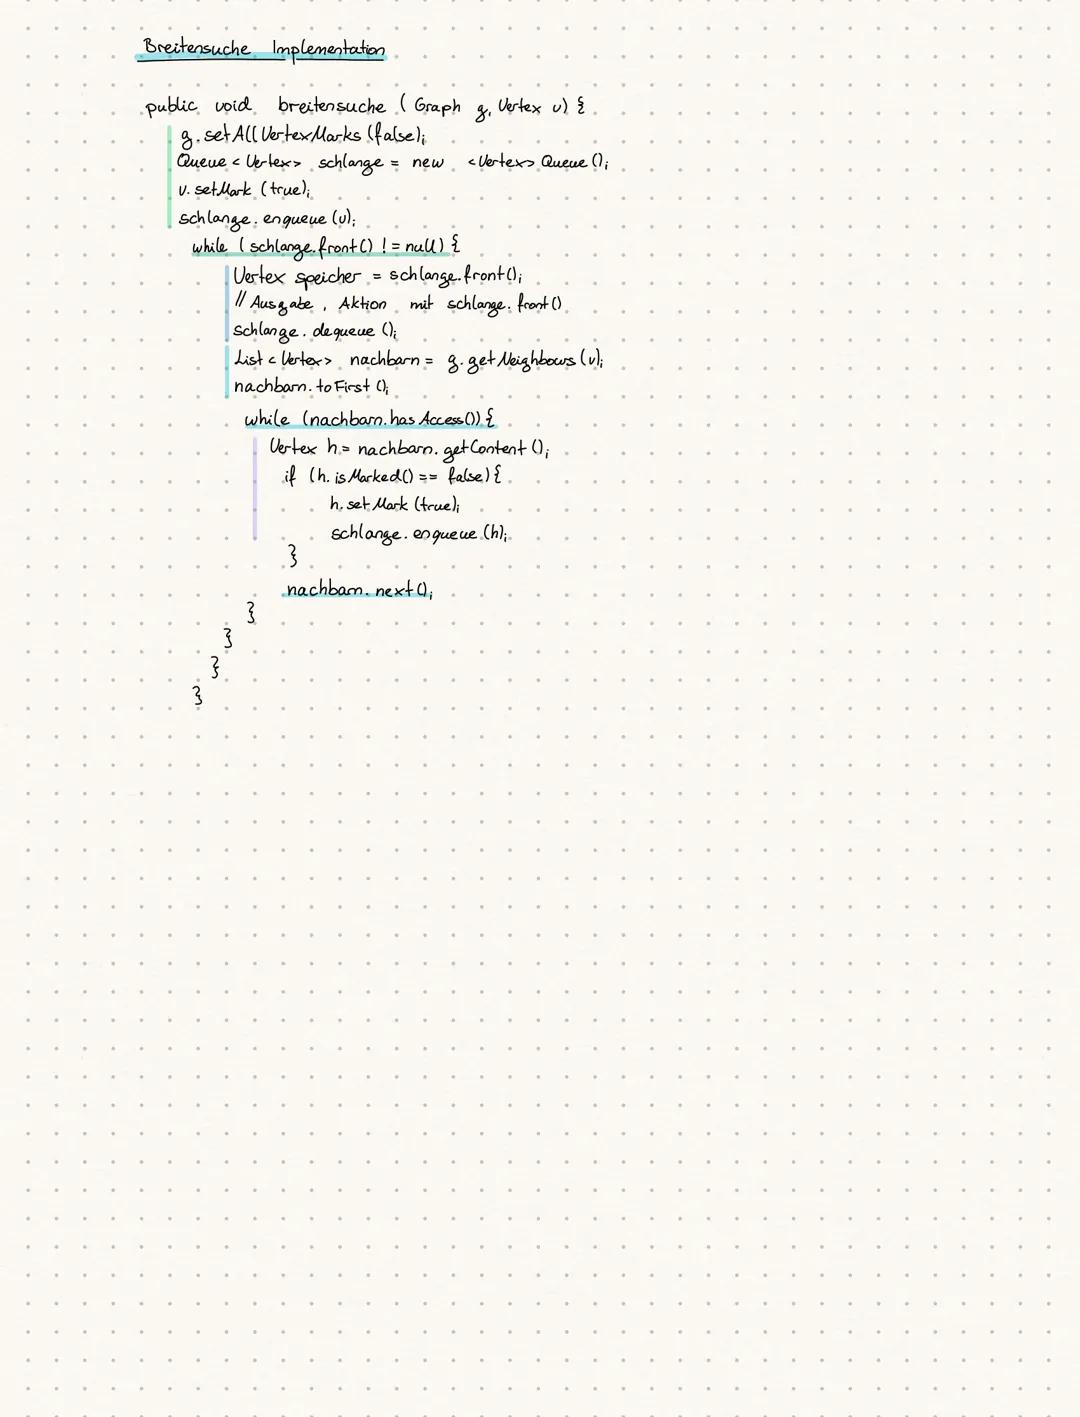 Breitensuche Implementation
public void breitensuche ( Graph g, Vertex v) {
g.setAllVertexMarks (false);
Queue < Vertex> schlange = new <Vertex> Queue ();
v. setMark (true);
schlange. enqueue (v);
while ( schlange.front() != null) {
Vertex speicher = schlange.front();
// Ausgabe , Aktion mit schlange. front()
schlange. dequeue ();
List < Vertex> nachbarn = g. get Neighbours (v);
nachbarn. to First ();
while (nachbarn. has Access()) {
Vertex h = nachbarn. getContent ();
if (h. is Marked() == false) {
h. set Mark (true);
schlange. enqueue (h);
}
nachbarn. next();
}
}
}
}